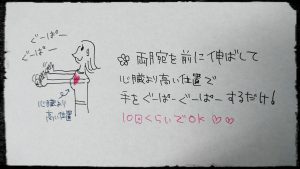 ぐーぱー
ぐーぱー
心臓より
高い位置
両腕を前に伸ばして
心臓より高い位置で
手をぐーぱーぐーぱーするだけ!
10回くらいでOK♡♡